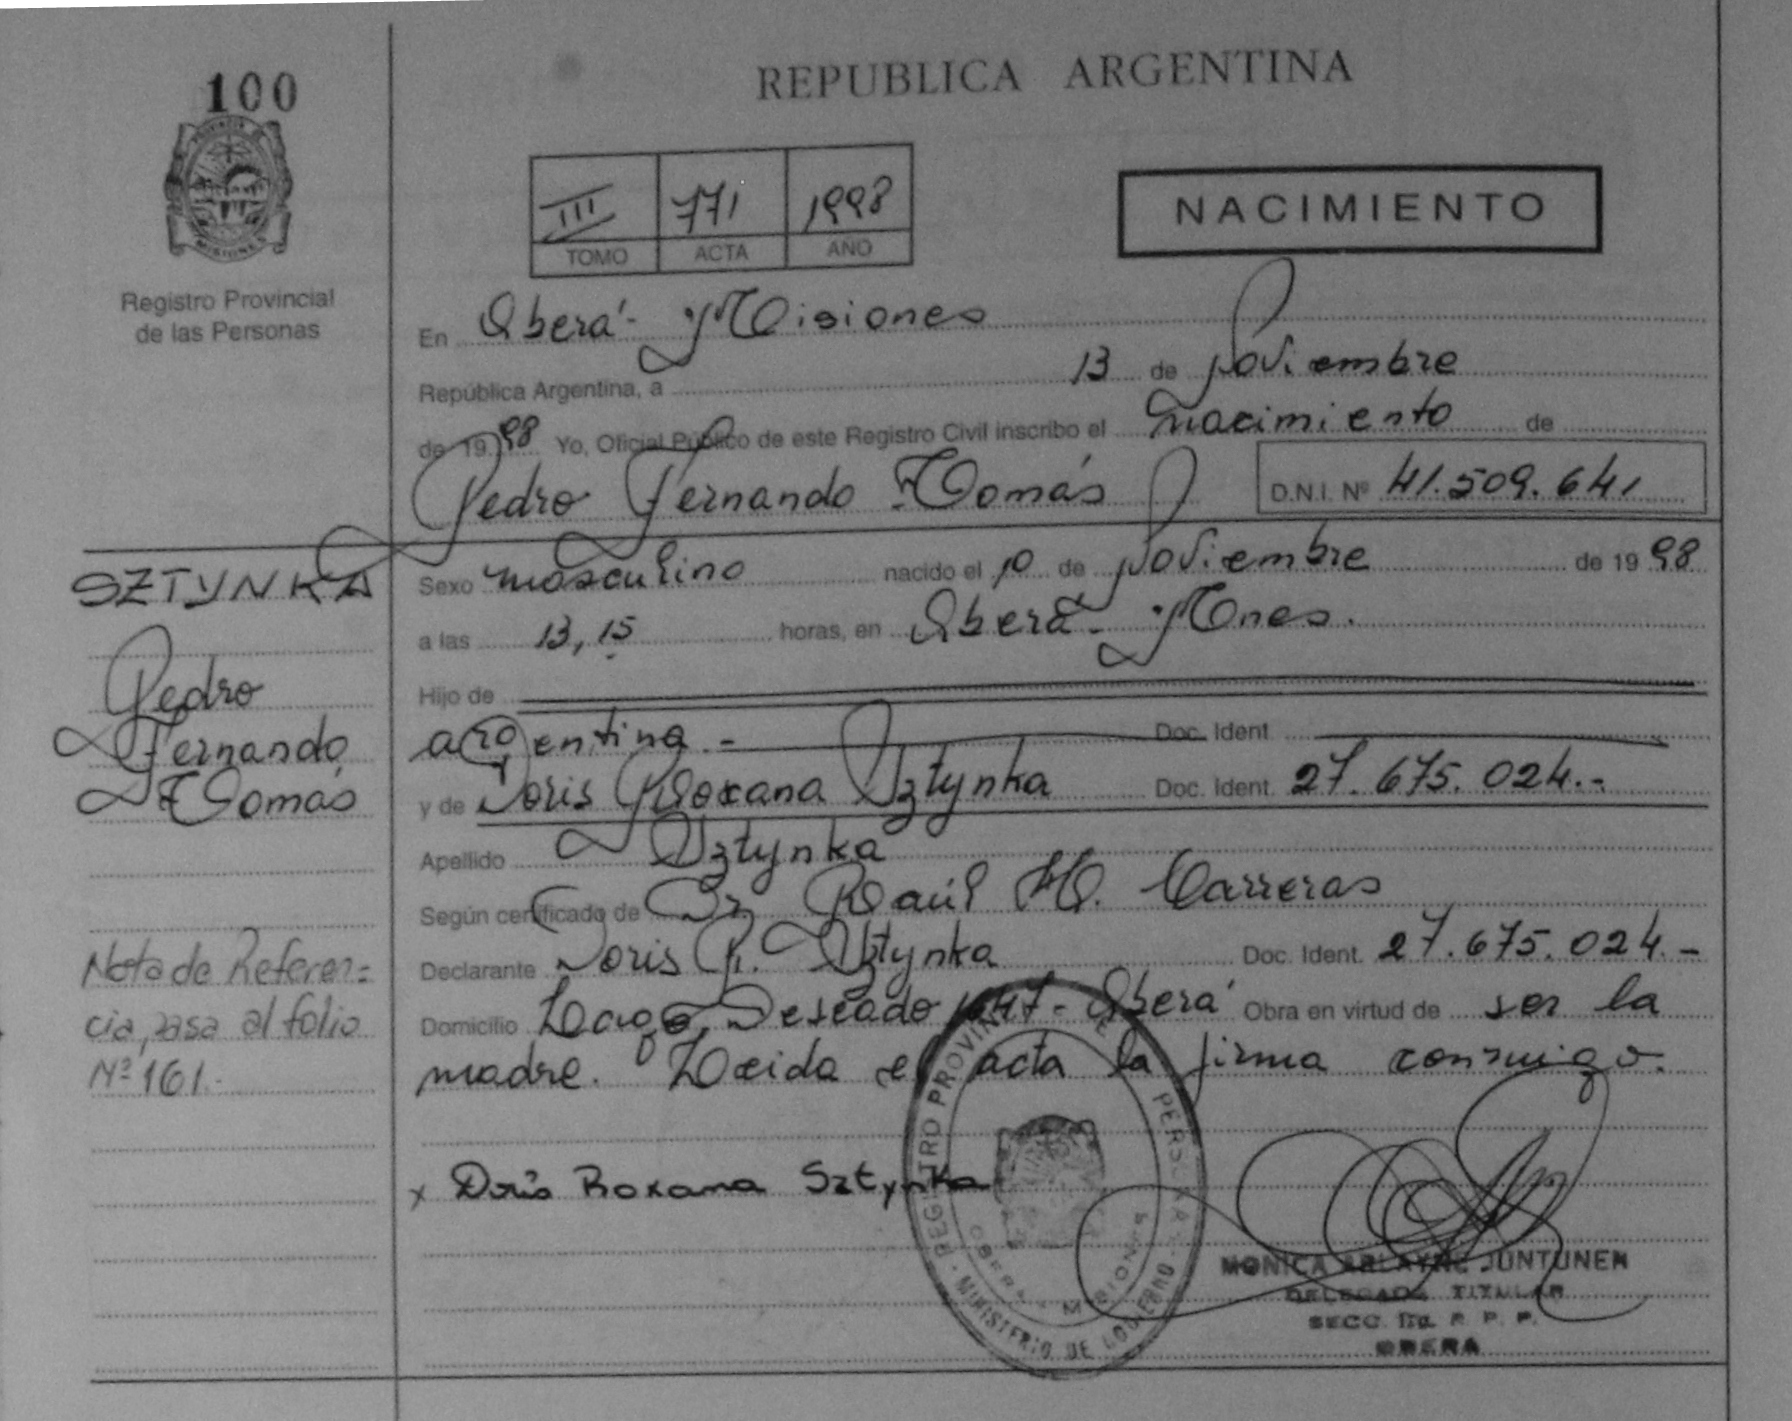 100
PROVINCIA DE
MISIONES
Registro Provincial
de las Personas
REPUBLICA ARGENTINA
III 771 1998
TOMO ACTA AÑO
NACIMIENTO
En Oberá - Misiones
República Argentina, a 13 de Noviembre
de 19 98 Yo, Oficial Público de este Registro Civil inscribo el nacimiento de
Pedro Fernando Tomás D.N.I. Nº 41.509.641
Sexo masculino nacido el 10 de Noviembre de 19 98
a las 13,15 horas, en Oberá - Mnes.
Hijo de
argentina.- Doc. Ident
y de Doris Roxana Sztynka Doc. Ident. 27.675.024.-
Apellido Sztynka
Según certificado de Dr. Raúl H. Carreras
Declarante Doris R. Sztynka Doc. Ident. 27.675.024.-
Domicilio Lago Deseado - Oberá Obra en virtud de ser la
madre. Leida el acta la firma conmigo.
x Doris Roxana Sztynka
SZTYNKA
Pedro
Fernando
Tomás
Nota de Referen=
cia, pasa al folio
Nº 161.-
REGISTRO PROVINCIAL DE PERSONAS
OBERA - MISIONES
MINISTERIO DE GOBIERNO
MONICA JUNTUNEN
DELEGADA TITULAR
SECC. R. P. P.
OBERA